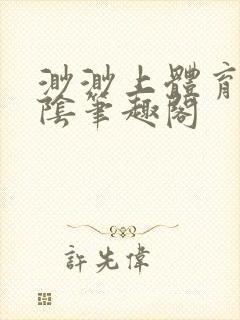 渺渺上體育
陰筆趣閣
許先偉